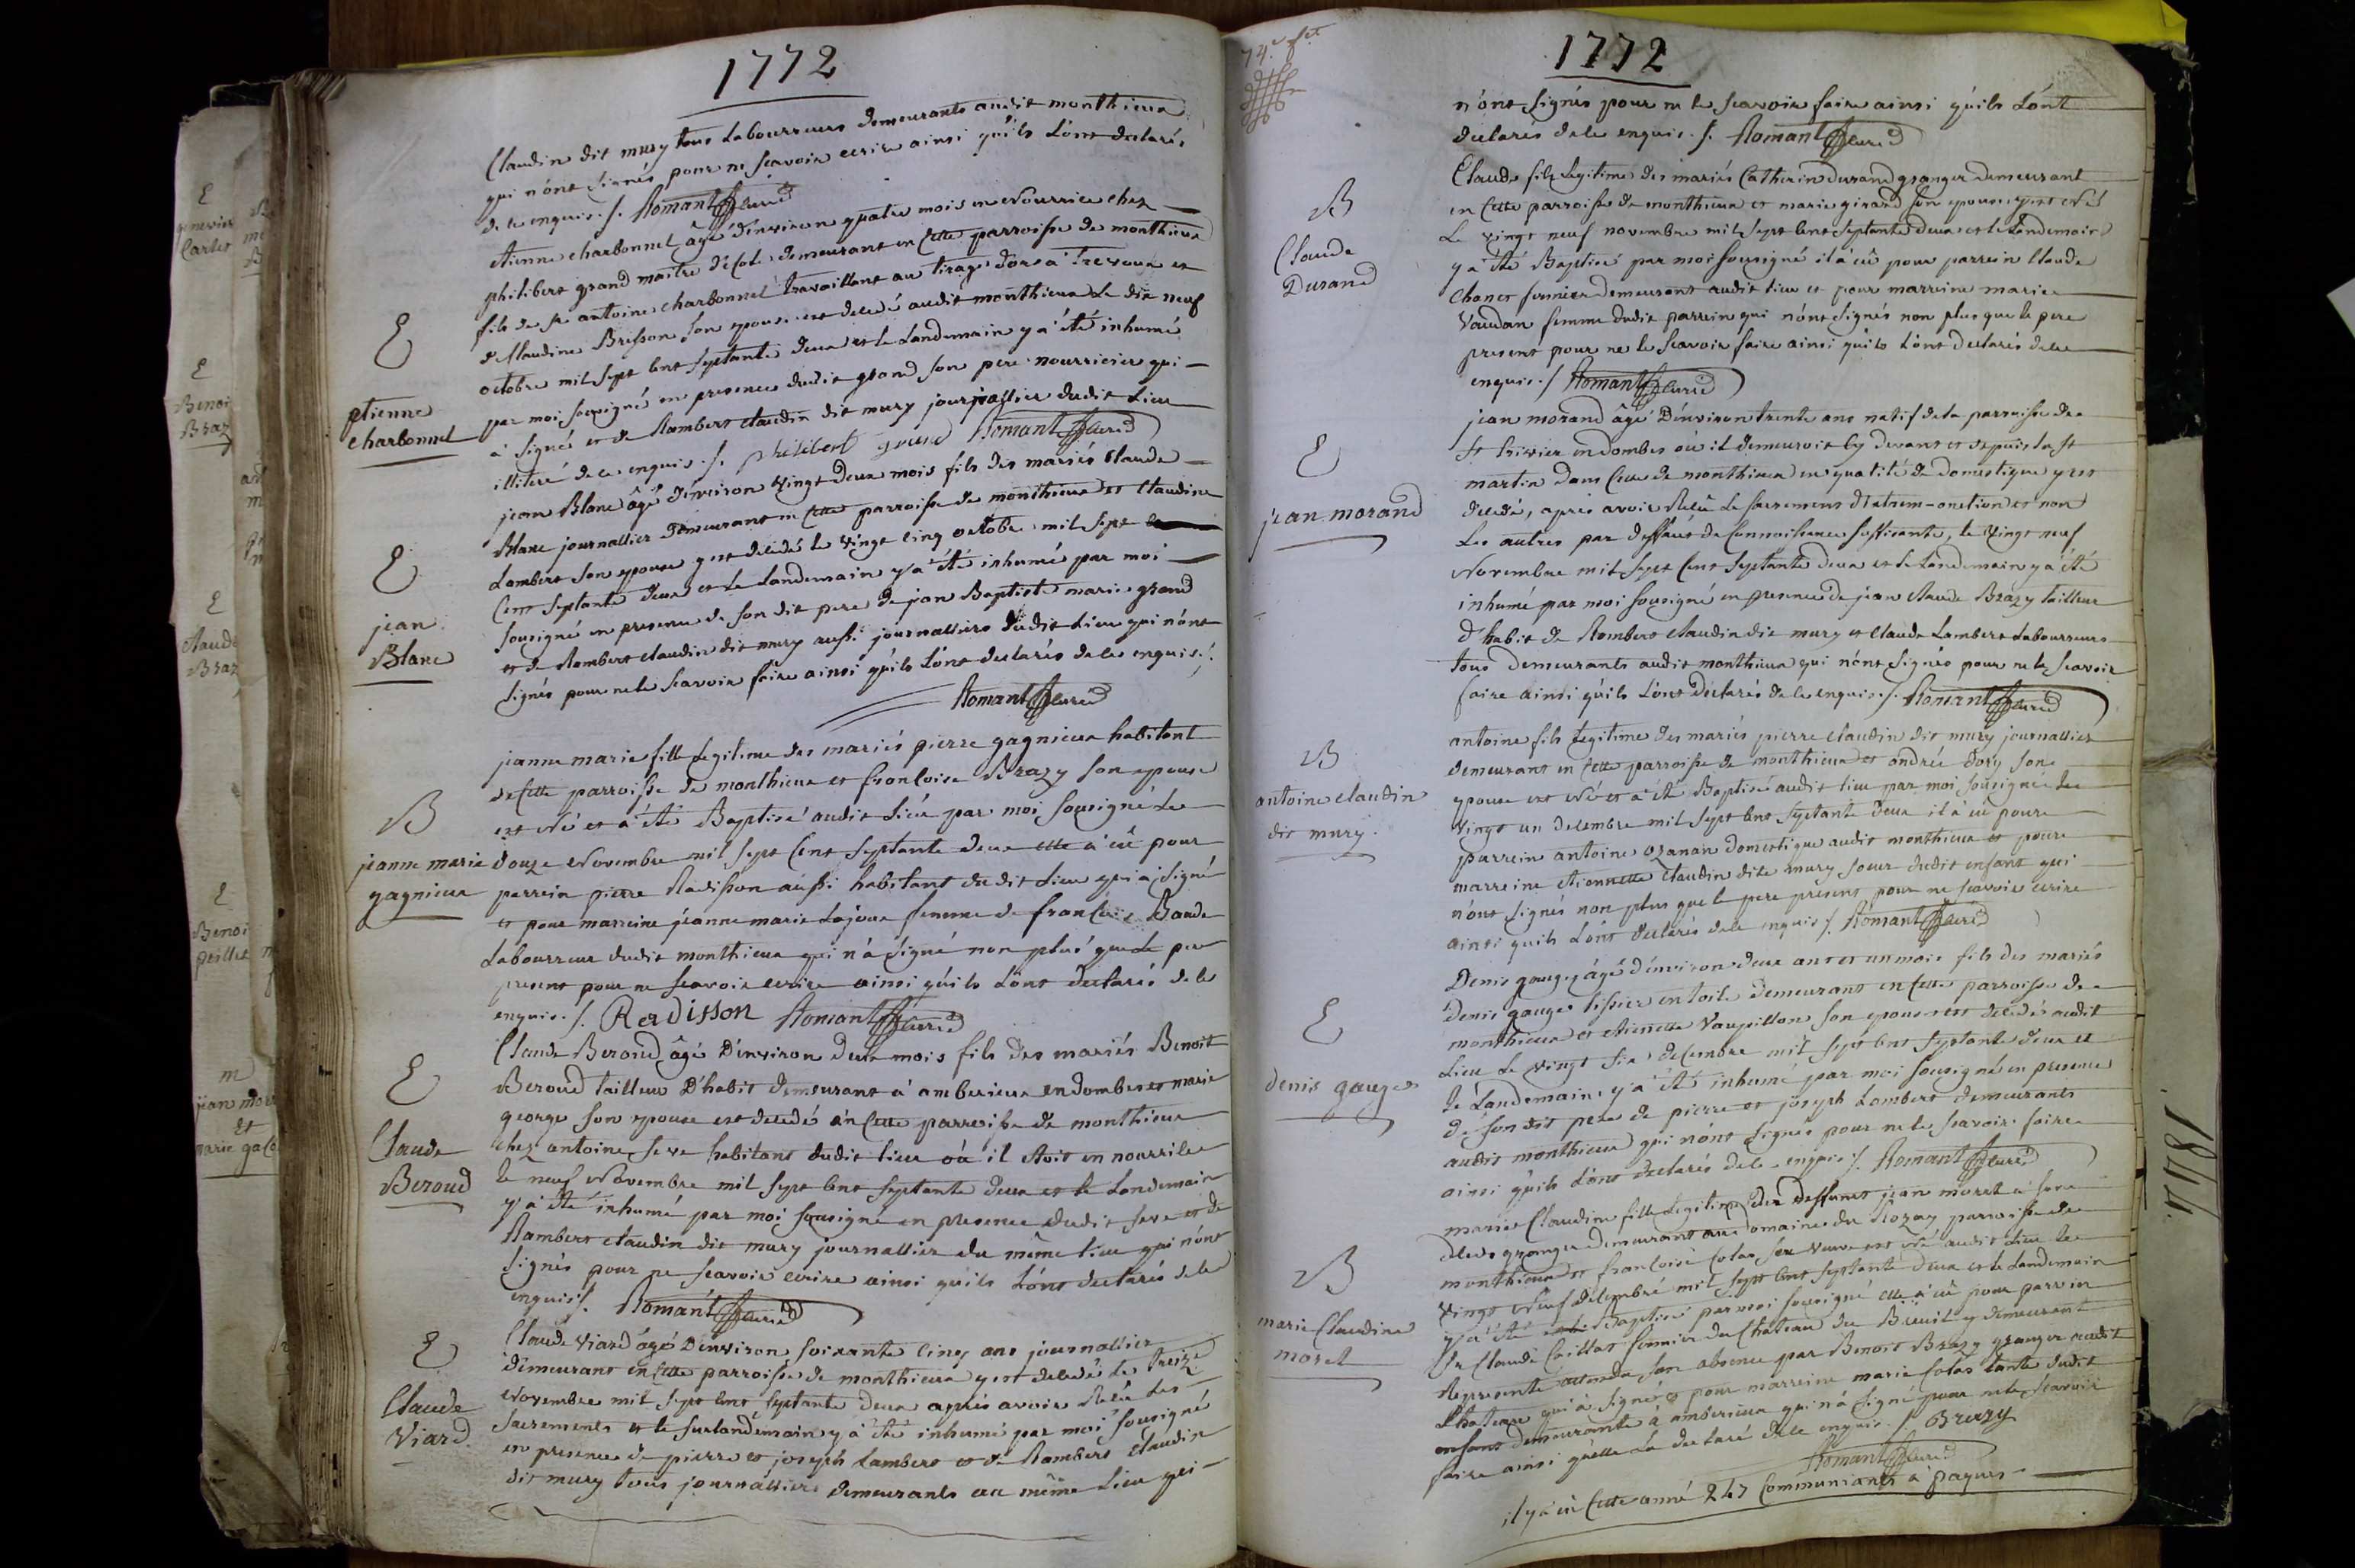 1772
Claudin dit mury tous Laboureurs demeurants audit monthieux
qui n'ont signés pour ne scavoir ecrire ainsi qu'ils L'ont declarés
de ce enquis ./. Romant curé
E
etienne charbonnel
etienne charbonnel âgé d'environ quatre mois en Nourrice chez
philibert grand maitre d'ecole demeurant en Cette parroisse de monthieux
fils de sr antoine charbonnel travaillant au tirage d'or à Trevoux et
de Claudine Brisson son epouse est decedé audit monthieux Le dix neuf
octobre mil sept cent septante deux et le Landemain y a été inhumé
par moi sousigné en presence dudit grand son pere nourricier qui
à signé et de Rambert claudin dit mury journallier dudit Lieu
illiteré de ce enquis ./. philibert grand Romant curé
E
jean
Blanc
jean Blanc âgé d'environ vingt deux mois fils des mariés Claude
Blanc journallier demeurant en Cette parroisse de monthieux et Claudine
Lambert son epouse y est decedé le vingt cinq octobre mil sept
Cent septante deux et Le Landemain y a été inhumé par moi
sousigné en presence de son dit pere de jean Baptiste marie grand
et de Rambert claudin dit mury aussi journalliers dudit Lieu qui n'ont
signés pour ne le scavoir faire ainsi qu'ils L'ont declarés de ce enquis ./.
Romant curé
B
jeanne marie
gagnieux
jeanne marie fille Legitime des mariés pierre gagnieux habitant
de Cette parroisse de monthieux et francoise Brazy son epouse
est Né et à été Baptisé audit Lieu par moi sousigné Le
douze Novembre mil sept Cent septante deux elle à eû pour
parrein pierre Radisson aussi habitant dudit Lieu qui a signé
et pour marreine jeanne marie Lajoux femme de francois Baude
Laboureur dudit monthieux qui n'a signé non plus que Le pere
present pour ne scavoir ecrire ainsi qu'ils L'ont declarés de ce
enquis ./. Radisson Romant curé
E
Claude
Beroud
Claude Beroud âgé D'environ deux mois fils des mariés Benoit
Beroud tailleur D'habit demeurant à amberieux en dombes et marie
george son epouse est decedé en Cette parroisse de monthieux
chez antoine seve habitant dudit Lieu où il etoit en nourrice
le neuf Novembre mil sept cent septante deux et le Landemain
y a été inhumé par moi sousigné en presence dudit seve et de
Rambert claudin dit mury journallier du même Lieu qui n'ont
signés pour ne scavoir ecrire ainsi qu'ils L'ont declarés de ce
enquis ./. Romant curé
E
Claude
Viard
Claude Viard âgé D'environ soixante cinq ans journallier
demeurant en Cette parroisse de monthieux y est decedé le treize
Novembre mil sept cent septante deux après avoir Recu Les
sacrements et le surlandemain y a été inhumé par moi sousigné
en presence de pierre et joseph Lambert et de Rambert Claudin
dit mury tous journalliers demeurants au même Lieu qui
1772
n'ont signés pour ne le scavoir faire ainsi qu'ils L'ont
declarés de ce enquis ./. Romant curé
B
Claude
Durand
Claude fils Legitime des mariés Catherin durand granger demeurant
en Cette parroisse de monthieux et marie girard son epouse y est Né
Le vingt neuf novembre mil sept cent septante deux et le Landemain
y a été Baptisé par moi sousigné il à eû pour parrein Claude
Chanet fermier demeurant audit Lieu et pour marreine marie
Vaudan femme dudit parrein qui n'ont signés non plus que le pere
present pour ne le scavoir faire ainsi qu'ils L'ont declarés de ce
enquis ./. Romant curé
E
jean morand
jean morand âgé D'environ trente ans natif de la parroisse de
st trivier en dombes où il demeuroit cy devant et depuis la st
martin dans Celle de monthieux en qualité de domestique y est
decedé, après avoir Recû Le sacrement d'extrem-onction et non
Les autres par deffaut de Connoissance suffisante, le vingt neuf
Novembre mil sept Cent septante deux et le Landemain y a été
inhumé par moi sousigné en presence de jean Claude Brazy tailleur
d'habit de Rambert claudin dit mury et Claude Lambert Laboureurs
tous demeurants audit monthieux qui n'ont signés pour ne le scavoir
faire ainsi qu'ils L'ont declarés de ce enquis ./. Romant curé
B
antoine claudin
dit mury
antoine fils Legitime des mariés pierre claudin dit mury journallier
demeurant en Cette parroisse de monthieux et andrée dory son
epouse est Né et à été Baptisé audit Lieu par moi sousigné Le
vingt un decembre mil sept cent septante deux il à eû pour
parrein antoine ozanan domestique audit monthieux et pour
marreine etiennette claudin dite mury soeur dudit enfant qui
n'ont signés non plus que le pere present pour ne scavoir ecrire
ainsi qu'ils L'ont declarés de ce enquis ./. Romant curé
E
denis gauge
Denis gauge âgé d'environ deux ans et un mois fils des mariés
denis gauge tissier en toile demeurant en Cette parroisse de
monthieux et etiennette Vaupillon son epouse est decedé audit
Lieu Le vingt six decembre mil sept cent septante deux et
le Landemain y a été inhumé par moi sousigné en presence
de son dit pere de pierre et joseph Lambert demeurants
audit monthieux qui n'ont signés pour ne le scavoir faire
ainsi qu'ils L'ont declarés de ce enquis ./. Romant curé
B
marie Claudine
moret
marie Claudine fille Legitime des deffunct jean moret
granger demeurant au domaine du Rozay parroisse de
monthieux et francoise Colas sa veuve est Né audit Lieu le
vingt Neuf decembre mil sept cent septante deux et le Landemain
y a été Baptisé par moi sousigné elle à eû pour parrein
sr Claude Caillat fermier du Chateau du Breuil y demeurant
Representé attendu son absence par Benoit Brazy granger audit
Chateau qui à signé et pour marreine marie Colas tante dudit
enfant demeurante à amberieux qui n'a signé pour ne le scavoir
faire ainsi qu'elle L'a declaré de ce enquis ./. Brazy
Romant curé
il y a eû Cette anné 247 Communiants à paques